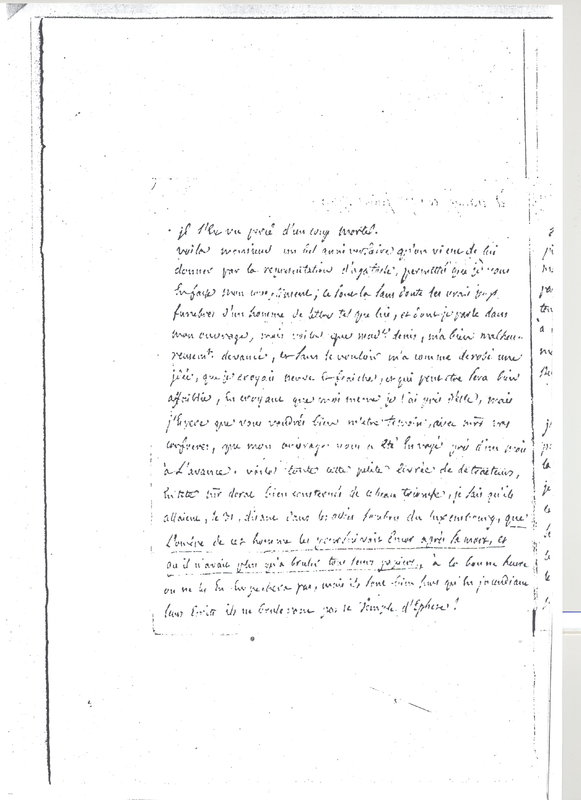 jl l'eu vu percé d'un coup mortel.
voila monsieur un bel anniversaire qu'on vient de lui
donner par la representation d'agatocle, permettés que je vous
en fasse mon compliment; ce sont la sans doute les vrais jeux
funebres d'un homme de lettre tel que lui, et dont je parle dans
mon ouvrage, mais voila que mad.e denis, m'a bien malheu-
reusement devancé, et sans le vouloir m'a comme derobé une
idée, que je croyais neuve et fraiche, et qui peut etre sera bien
affoiblie, en croyant que moi meme je l'ai pris d'elle, mais
j'espere que vous voudrés bien m'etre temoin, avec mrs vos
confreres, que mon ouvrage vous a été envoyé près d'un mois
à l'avance. voila toute cette petite livrée de detracteurs,
en tete mr dorat bien consternés de ce beau triomphe, je sais qu'ils
allaient, le 31, disant dans les allées du luxembourg, que
l'ombre de cet homme les poursuivait encor après la mort, et
qu'il n'avait plus qu'a bruler tous leurs papiers, à la bonne heure
on ne les en empechera pas, mais ils sont bien surs qu'en incendiant
leurs ecrits ils ne bruleront pas le Temple d'Ephese!